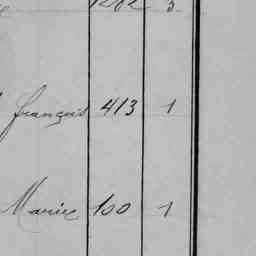 1202 3
françois 413 1
Marie 100 1